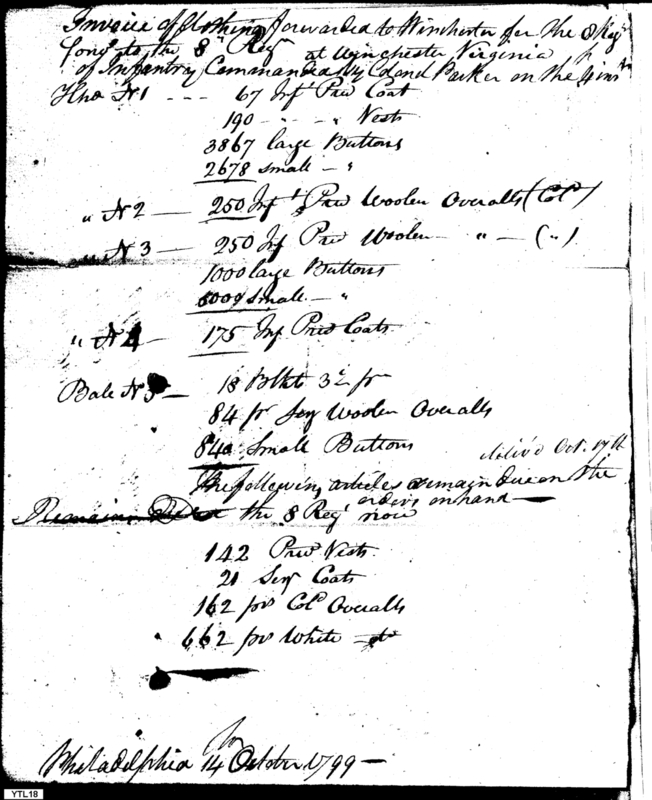 Invoice of Clothing forwarded to Winchester for the 8 Regt
Cong to the 8th Regt at Winchester Virginia
of Infantry Commanded by Colonel Parker on the 4 inst
Hhd N 1 - - - 67 Inf Priv Coat
190 - - - Vests
3867 large Buttons
2678 small - "
" N 2 — 250 Inf Priv Woolen Overalls (Cold)
" N 3 — 250 Inf Priv Woolen " — (")
1000 large Buttons
6009 small - "
" N 4 — 175 Inf Priv Coats
Bale N 5 — 18 Blkt 3 pr
84 pr Serj Woolen Overalls
840 Small Buttons
Oct. 17th
The following articles remain due on the
orders on hand —
the 8 Regt now
142 Priv Vests
21 Serj Coats
162 prs Cold Overalls
662 prs White do
Philadelphia 14 October 1799 —
YTL18